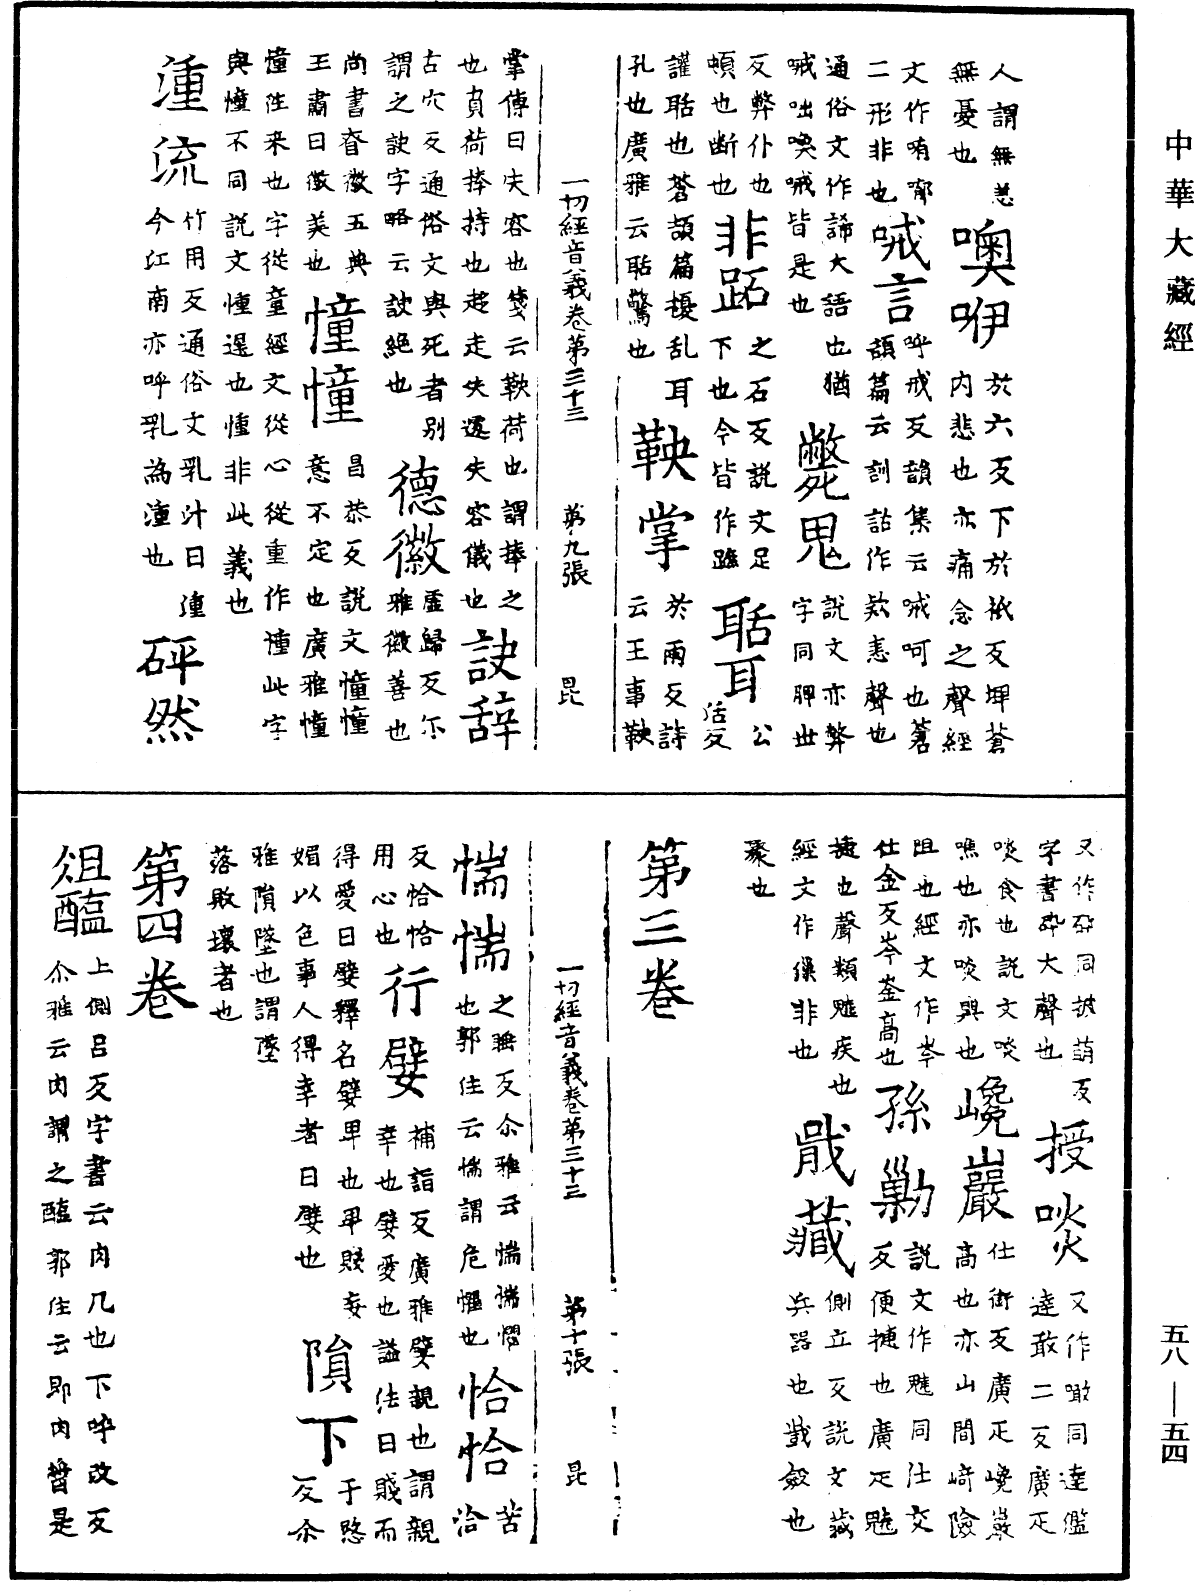 中華大藏經
人謂無恙
無憂也
噢咿
於六反下於祇反埤蒼
內悲也亦痛念之聲經
文作喐郁
二形非也
喊言
呼戒反韻集云喊呵也蒼
頡篇云訓詰作欸恚聲也
通俗文作諦大語也猶
喊咄喚喊皆是也
斃鬼
說文亦弊
字同脾世
反弊仆也
頓也斷也
非跖
之石反說文足
下也今皆作蹠
聒耳
公
活反
讙聒也蒼頡篇擾乱耳
孔也廣雅云聒驚也
鞅掌
於兩反詩
云王事鞅
一切經音義卷第三十三 第九張 昆
掌傳曰失容也箋云鞅荷也謂捧之
也負荷捧持也趍走失還失容儀也
訣辞
古穴反通俗文與死者別
謂之訣字略云訣絕也
德徽
虛歸反尒
雅徽善也
尚書眘徽五典
王肅曰徽美也
憧憧
昌恭反說文憧憧
意不定也廣雅憧
憧往来也字從童經文從心從重作㣫此字
與憧不同說文㣫遲也㣫非此義也
湩流
竹用反通俗文乳汁曰湩
今江南亦呼乳為湩也
砰然
又作砏同披萌反
字書砕大聲也
授啖
又作噉同達濫
達敢二反廣疋
啖食也說文啖
噍也亦啖與也
巉巖
仕銜反廣疋巉巖
高也亦山間﨑險
岨也經文作岑
仕金反岑崟高也
孫勦
說文作魑同仕交
反便㨗也廣疋魑
揵也聲類魑疾也
經文作㒒非也
戢藏
側立反說文藏
兵器也戢斂也
聚也
第三卷
一切經音義卷第三十三 第十張 昆
惴惴
之睡反尒雅云惴惴懼
也郭住云惴謂危懼也
恰恰
苦
洽
反恰恰
用心也
行嬖
補詣反廣雅嬖親也謂親
幸也嬖愛也謚法曰賤而
得愛曰嬖釋名嬖卑也卑賤妾
媚以色事人得幸者曰嬖也
隕下
于愍
反尒
雅隕墜也謂墜
落敗壞者也
第四卷
俎醢
上側呂反字書云肉几也下呼改反
尒雅云肉謂之醢郭住云即肉醬是
五八—五四